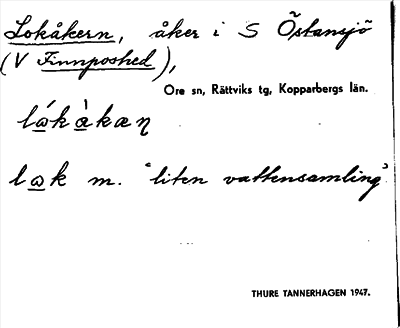 Lokåkern, åker i S Östansjö
(V Finnposhed),
Ore sn, Rättviks tg, Kopparbergs län.
lɷ́kàkæṇ
lɷk m. "liten vattensamling"
THURE TANNERHAGEN 1947.